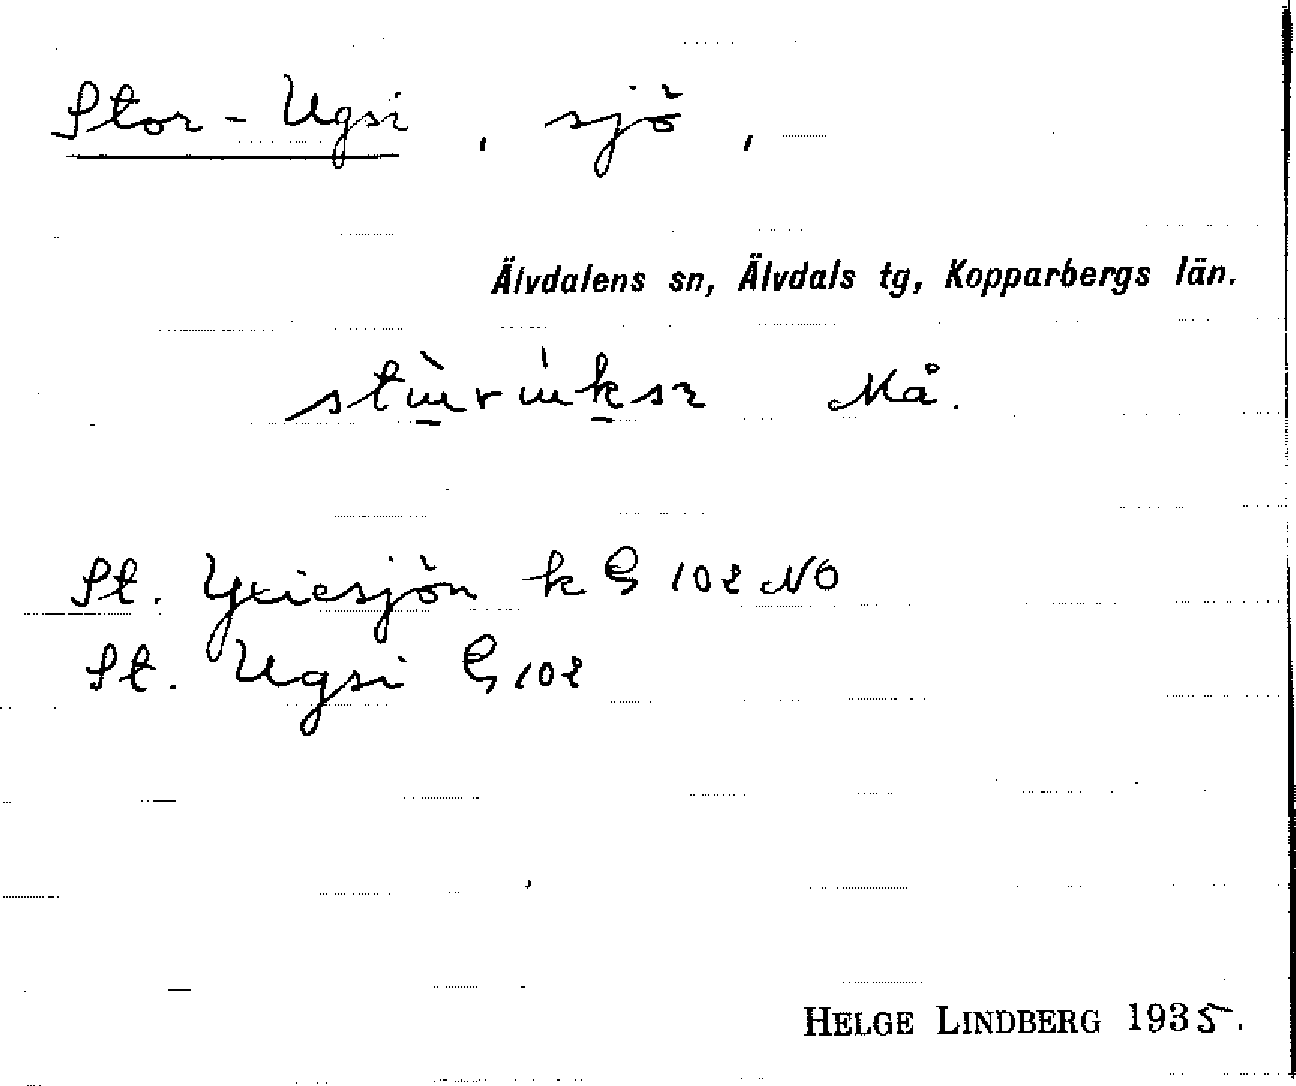 Stor-Ugsi, sjö,
Älvdalens sn, Älvdals tg, Kopparbergs län.
Må.
St. Yxiesjön k G 102 NO
St. Ugsi G 102
HELGE LINDBERG 1935.